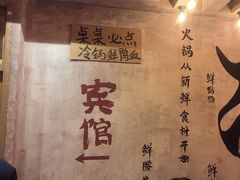 桌桌必点
冷锅鲜鸭血
宾馆
火锅从新鲜食材开始
鲜鸭肠
鲜腰